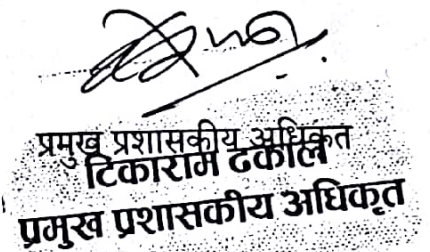 प्रमुख प्रशासकीय अधिकृत
टिकाराम ढकाल
प्रमुख प्रशासकीय अधिकृत